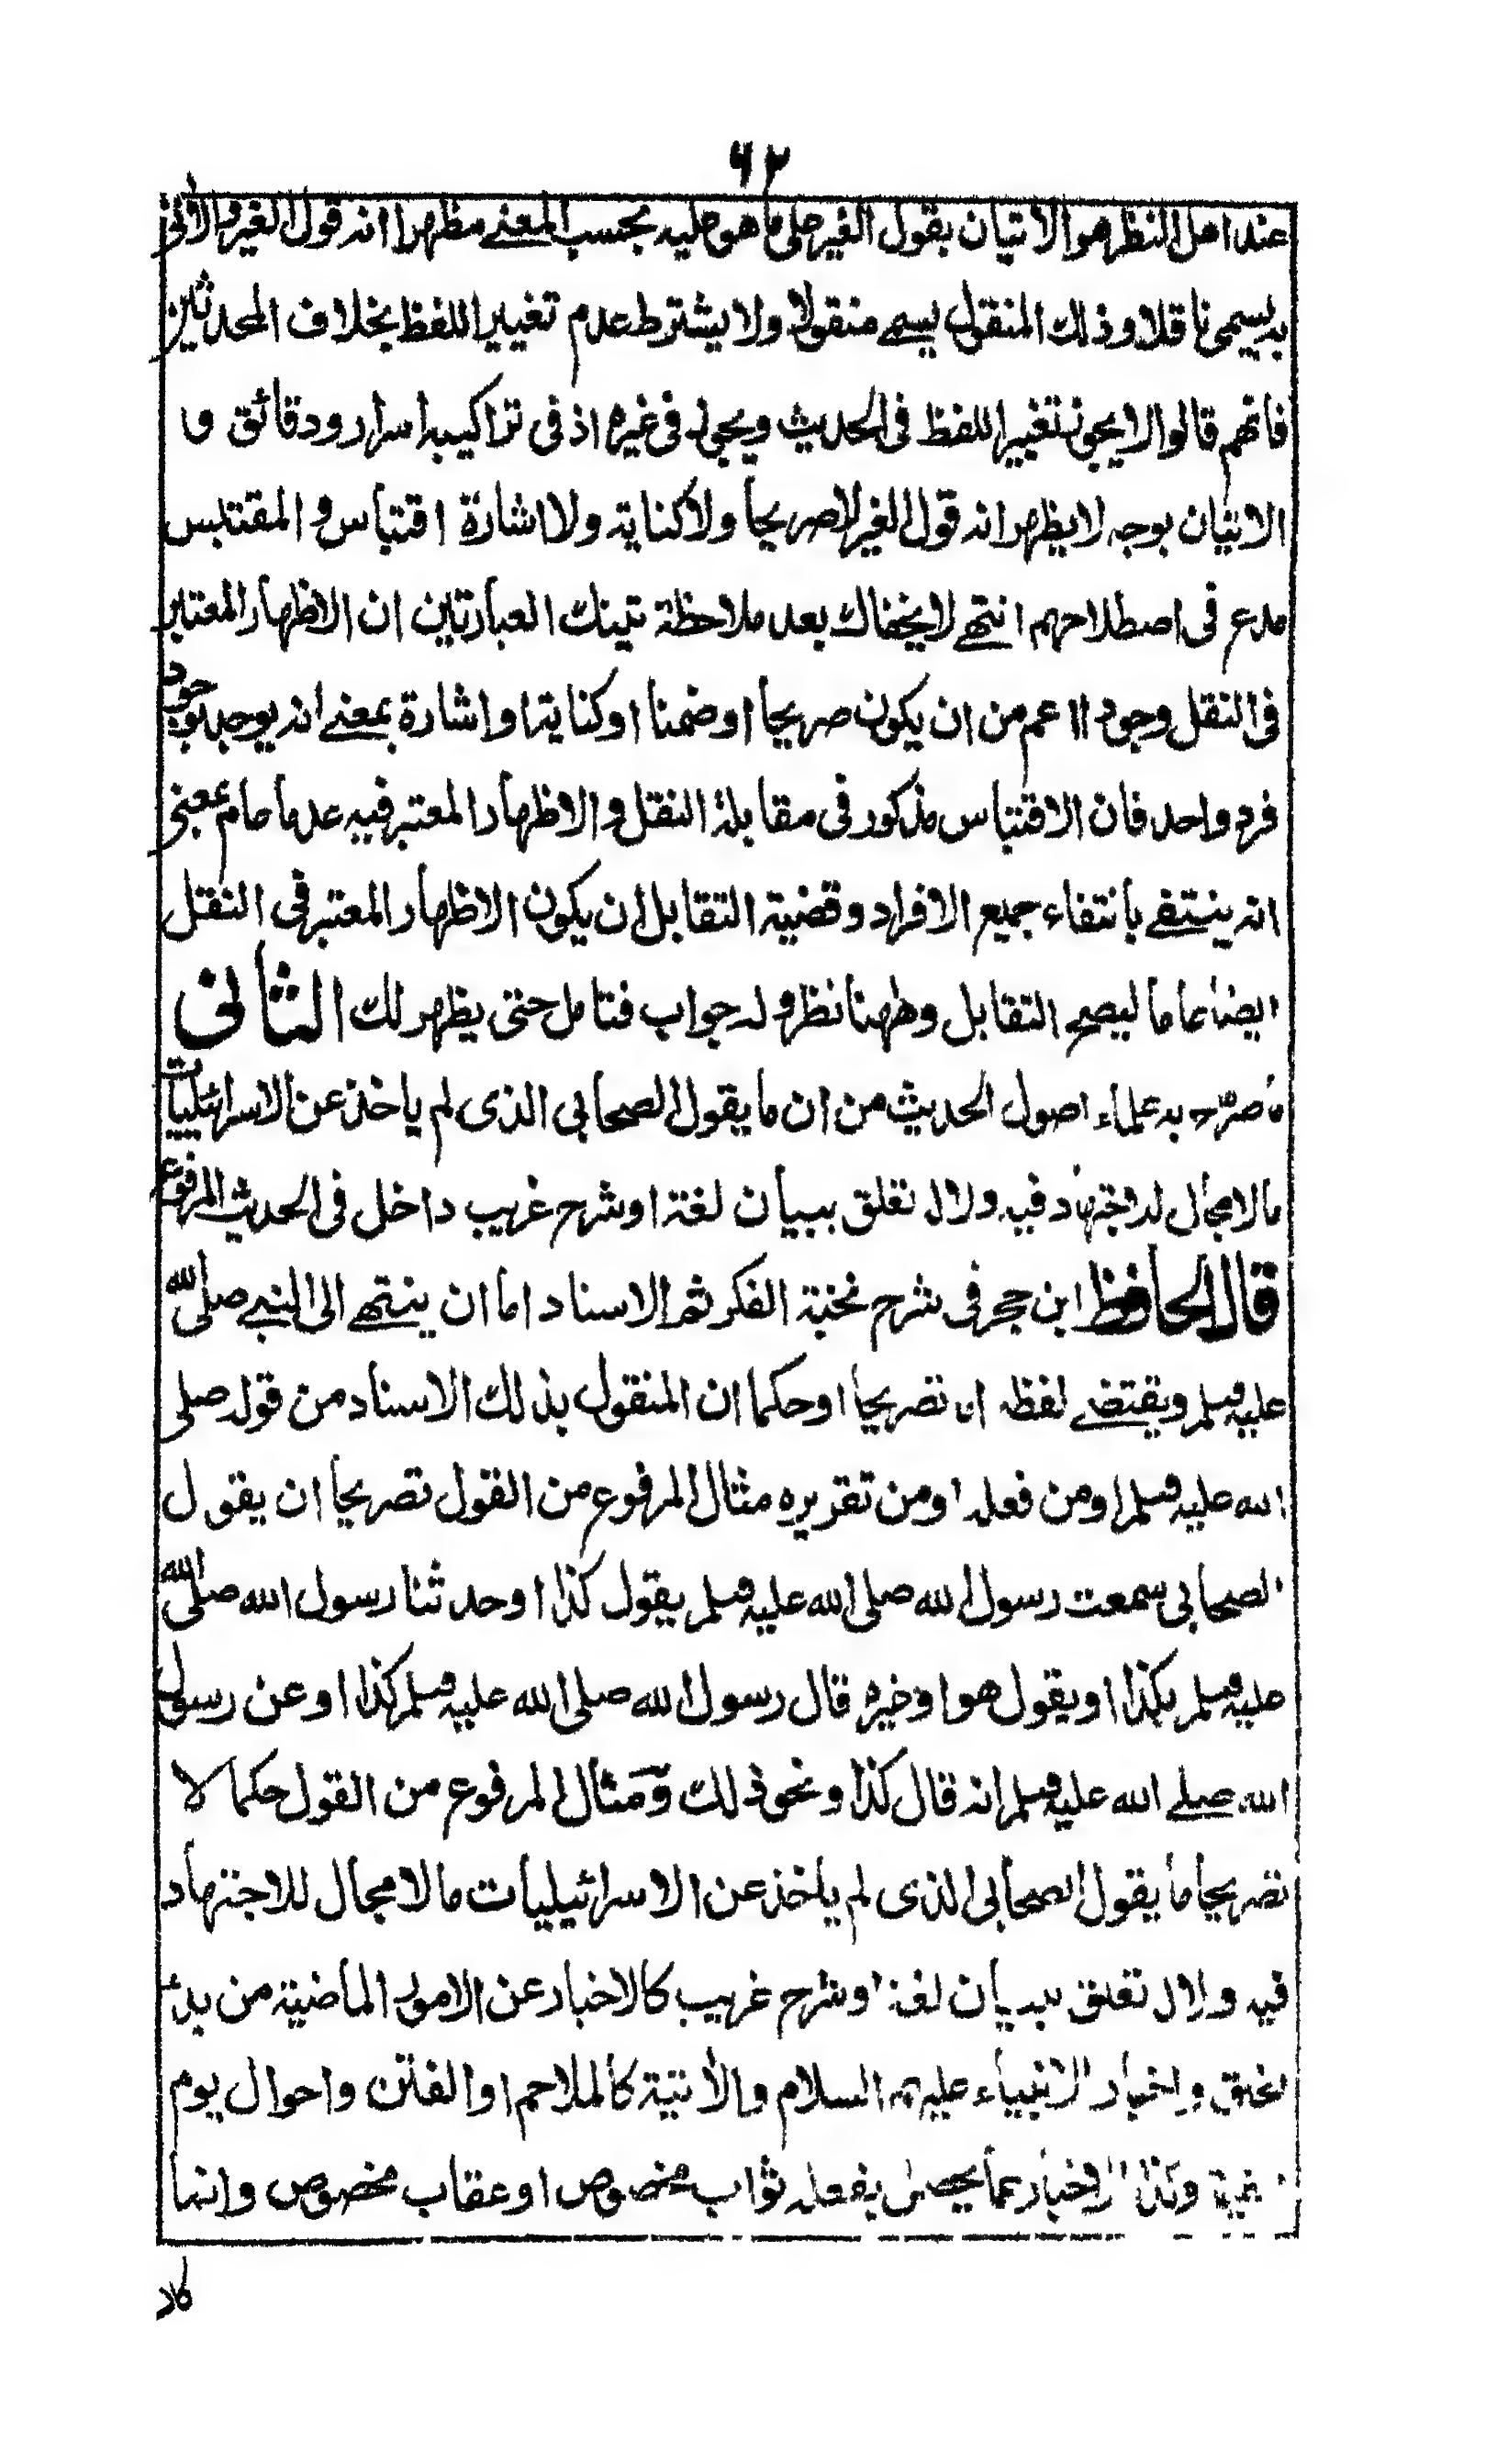 ٦٢
عند اهل النظر هو الاتيان بقول الغير على ما هو عليه بحسب المعنے مظهرا انه قول الغير والأتی
به يسمى ناقلا وذلك المنقول يسمے منقولا ولا يشترط عدم تغيير اللفظ بخلاف المحدثين
فانهم قالوا لا يجوز تغيير اللفظ فى الحديث ويجوز فى غيره اذ فى تراكيبه أسرار ودقائق و
الاتيان بوجه لا يظهر انه قول الغير لا صريحا ولا كناية ولا اشارة اقتباس و المقتبس
مدع فى اصطلاحهم انتهے لا يخفاك بعد ملاحظة تينك العبارتين ان الاظهار المعتبر
فى النقل وجودا اعم من ان يكون صريحا او ضمنا او كناية او اشارة بمعنے انه يوجد بوجود
فرد واحد فان الاقتباس مذكور فى مقابلة النقل والاظهار المعتبر فيه عدما عام بمعنى
انه ينتفے بانتفاء جميع الافراد وقضية التقابل ان يكون الاظهار المعتبر فى النقل
ايضا عاما ليصح التقابل وههنا نظر وله جواب فتامل حتى يظهر لك الثانى
ما صرح به علماء اصول الحديث من ان ما يقول الصحابى الذى لم ياخذ عن الاسرائيليات
مالا مجال للاجتهاد فيه ولا له تعلق ببيان لغة او شرح غريب داخل فى الحديث المرفوع
قال الحافظ ابن حجر فى شرح نخبة الفكر ثم الاسناد اما ان ينتهے الى النبے صلى الله
عليه وسلم ويقتضے لفظه اما تصريحا او حكما ان المنقول بذلك الاسناد من قوله صلى
الله عليه وسلم او من فعله او من تقريره مثال المرفوع من القول تصريحا ان يقول
الصحابى سمعت رسول الله صلى الله عليه وسلم يقول كذا او حدثنا رسول الله صلى الله
عليه وسلم بكذا او يقول هو او غيره قال رسول الله صلى الله عليه وسلم كذا او عن رسول
الله صلے الله عليه وسلم انه قال كذا ونحو ذلك ومثال المرفوع من القول حكما لا
تصريحا ما يقول الصحابى الذى لم ياخذ عن الاسرائيليات مالا مجال للاجتهاد
فيه ولا له تعلق ببيان لغة او شرح غريب كالاخبار عن الامور الماضية من بدء
الخلق واخبار الانبياء عليهم السلام والأتية كالملاحم او الفتن واحوال يوم
القيمة وكذا الاخبار عما يحصل بفعله ثواب مخصوص او عقاب مخصوص وانما
كان